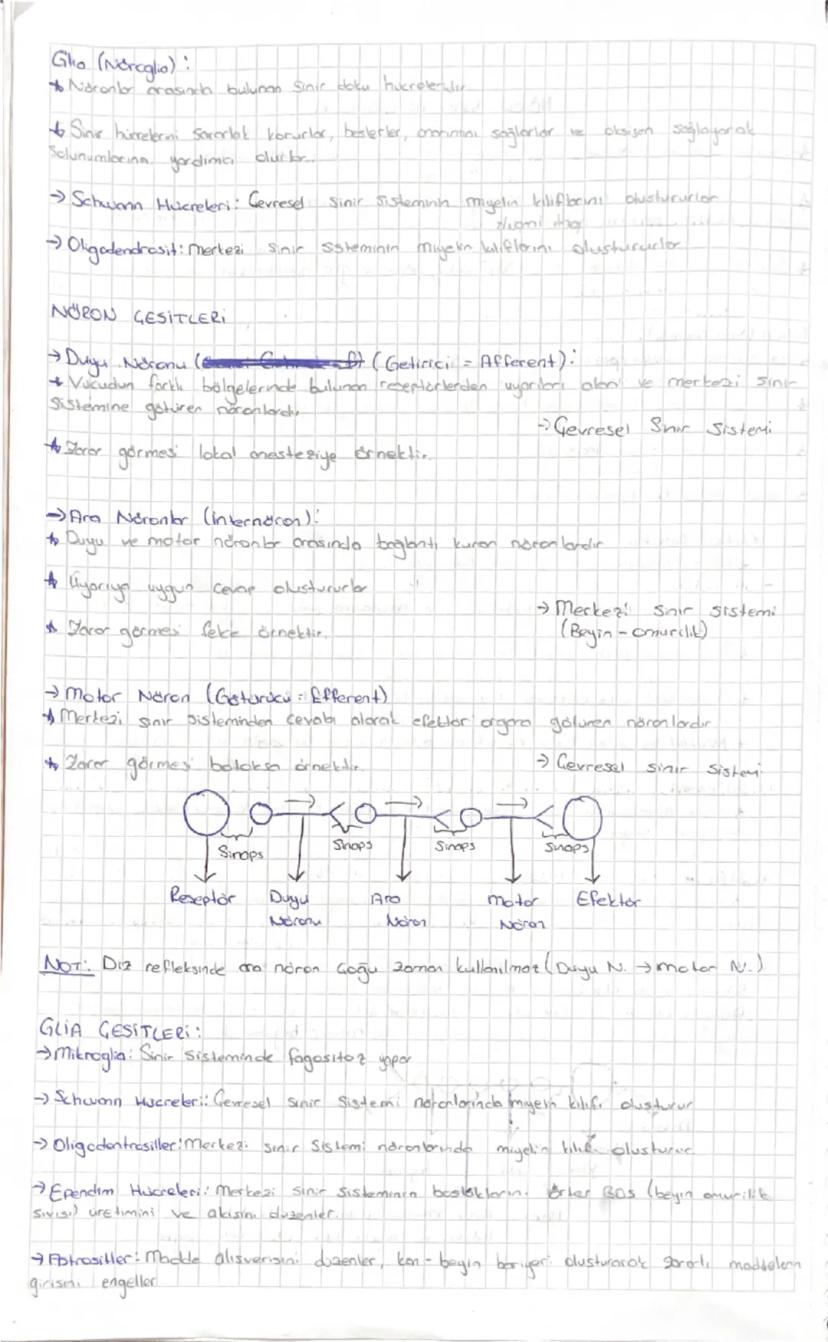 Glia (Nöroglia):
* Nöronlar arasında bulunan sinir doku hücreleridir
* Sinir hücrelerini sararlak korurlar, beslerler, onarımını sağlarlar ve oksijen sağlayarak
Solunumlarına yardımcı olurlar.
→ Schwann Hücreleri: Çevresel sinir sisteminin miyelin kılıflarını oluştururlar
→ Oligodendrosit: Merkezi sinir sisteminin miyelin kılıflarını oluştururlar
NÖRON ÇEŞİTLERİ
→ Duyu Nöronu ( (Getirici = Afferent):
* Vücudun farklı bölgelerinde bulunan reseptörlerden uyarıları alan ve merkezi sinir
Sistemine götüren nöronlardır
→ Çevresel Sinir Sistemi
* Zarar görmesi lokal anesteziye örnektir.
→ Ara Nöronlar (İnternöron):
* Duyu ve motor nöronlar arasında bağlantı kuran nöronlardır
* Uyarıya uygun cevap oluştururlar
→ Merkezi sinir sistemi
* Zarar görmesi felce örnektir.
(Beyin - omurilik)
→ Motor Nöron (Götürücü = Efferent)
* Merkezi sinir sisteminden cevabı alarak efektör organa götüren nöronlardır
* Zarar görmesi botoksa örnektir.
→ Çevresel sinir sistemi
Sinaps Sinaps Sinaps Sinaps
Reseptör Duyu Ara Motor Efektör
Nöronu Nöron Nöron
NOT: Diz refleksinde ara nöron çoğu zaman kullanılmaz (Duyu N. → Motor N.)
GLİA ÇEŞİTLERİ:
→ Mikroglia: Sinir Sisteminde fagositoz yapar
→ Schwann Hücreleri: Çevresel sinir sistemi nöronlarında miyelin kılıfı oluşturur
→ Oligodentrositler: Merkezi sinir sistemi nöronlarında miyelin kılıfı oluşturur.
→ Ependim Hücreleri: Merkezi sinir sisteminin boşluklarını örter BOS (beyin omurilik
sıvısı) üretimini ve akışını düzenler.
→ Astrositler: Madde alışverişini düzenler, kan-beyin bariyeri oluşturarak zararlı maddelerin
girişini engeller